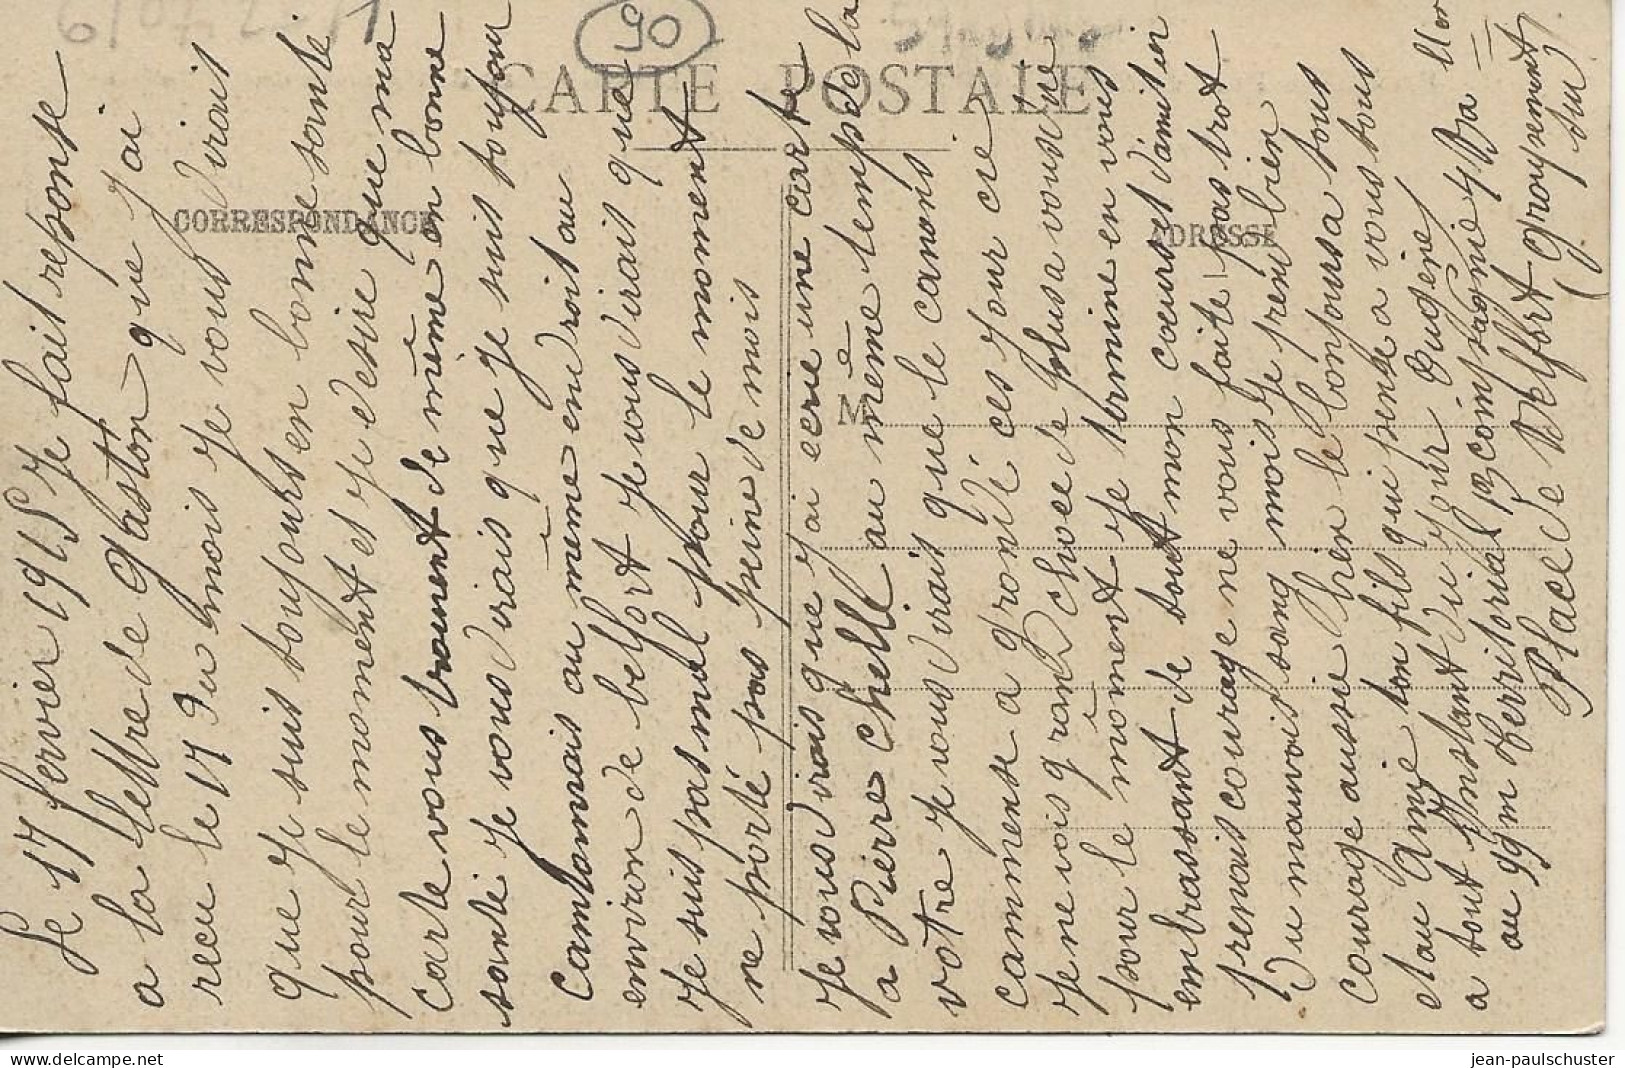 CARTE POSTALE
CORRESPONDANCE
ADRESSE
M
Le 17 fervier 1915 Je fait reponse
a la lettre de Gaston que J'ai
recu le 17 du mois Je vous dirait
que Je suit toujours en bonne sante
pour le moment et Je desire que ma
carte vous trouvent de même en bonne
santé Je vous dirais que Je suit toujour
cantonnais au même endroit au
environ de belfort Je vous dirait que
Je suit pas mal pour le moment
ne porté pas peine de mois
Je vous dirais que J'ai ecrie une carte
a Pierre Chelle au même temps de la
votre Je vous dirais que le canons
commense a grondé ces Jour cie
Je ne vois grand chose de plus a vous dire
pour le moment Je termine en vous
embrassant de tout mon coeurs et d'amitier
prenais courage ne vous faite pas trot
du mauvait sang mois Je prend bien
courage aussie bien le bonjours a tous
et au Amie ton fils qui pense a vous tous
a tout Instant du Jour Eugène
au 99m Territorial 13 compagnie
Place de Belfort (groupement
sud)
jean-paulschuster